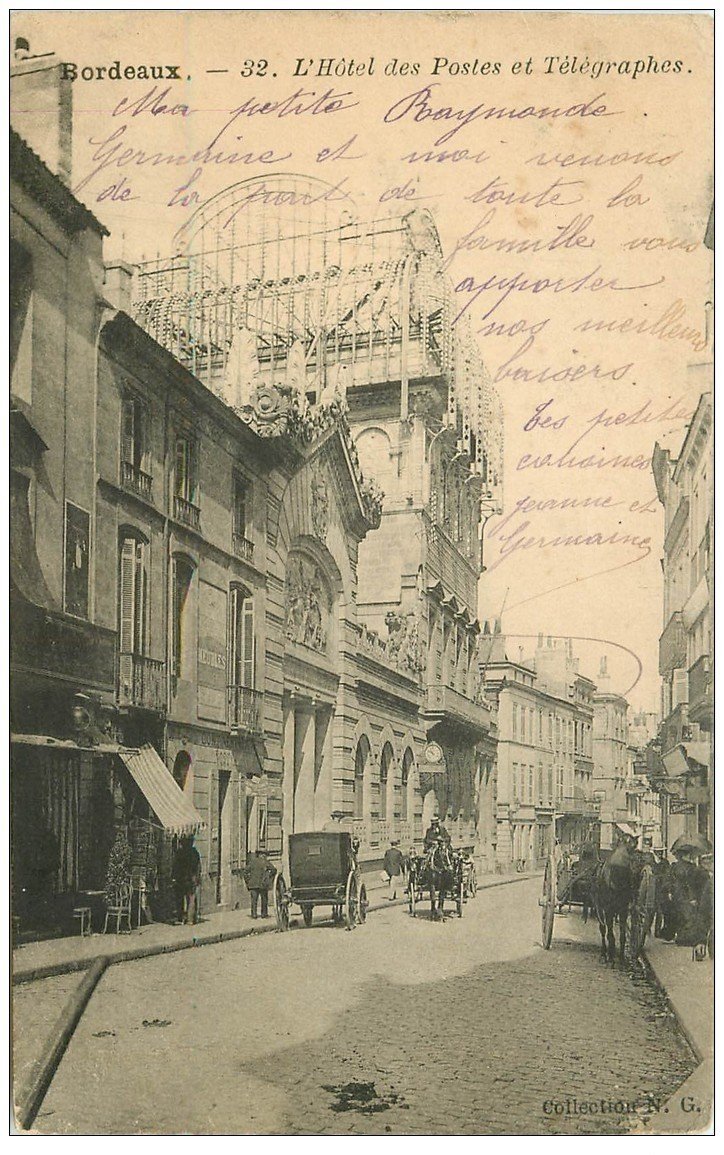 Bordeaux. — 32. L'Hôtel des Postes et Télégraphes.
Ma petite Raymonde
Germaine et moi venons
de la part de toute la
famille vous
apporter
nos meilleurs
baisers.
Les petites
cousines
Jeanne et
Germaine
Collection N. G.